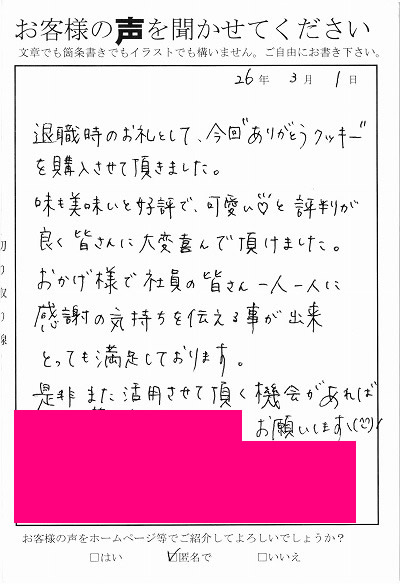 お客様の声を聞かせてください
文章でも箇条書きでもイラストでも構いません。ご自由にお書き下さい。
26年 3月 1日
退職時のお礼として、今回"ありがとうクッキー"
を購入させて頂きました。
味も美味いと好評で、可愛い♡と評判が
良く皆さんに大変喜んで頂けました。
おかげ様で社員の皆さん一人一人に
感謝の気持ちを伝える事が出来
とっても満足しております。
是非また活用させて頂く機会があれば
お願いします\(^^)/
切り取り線
お客様の声をホームページ等でご紹介してよろしいでしょうか?
□はい ☑匿名で □いいえ